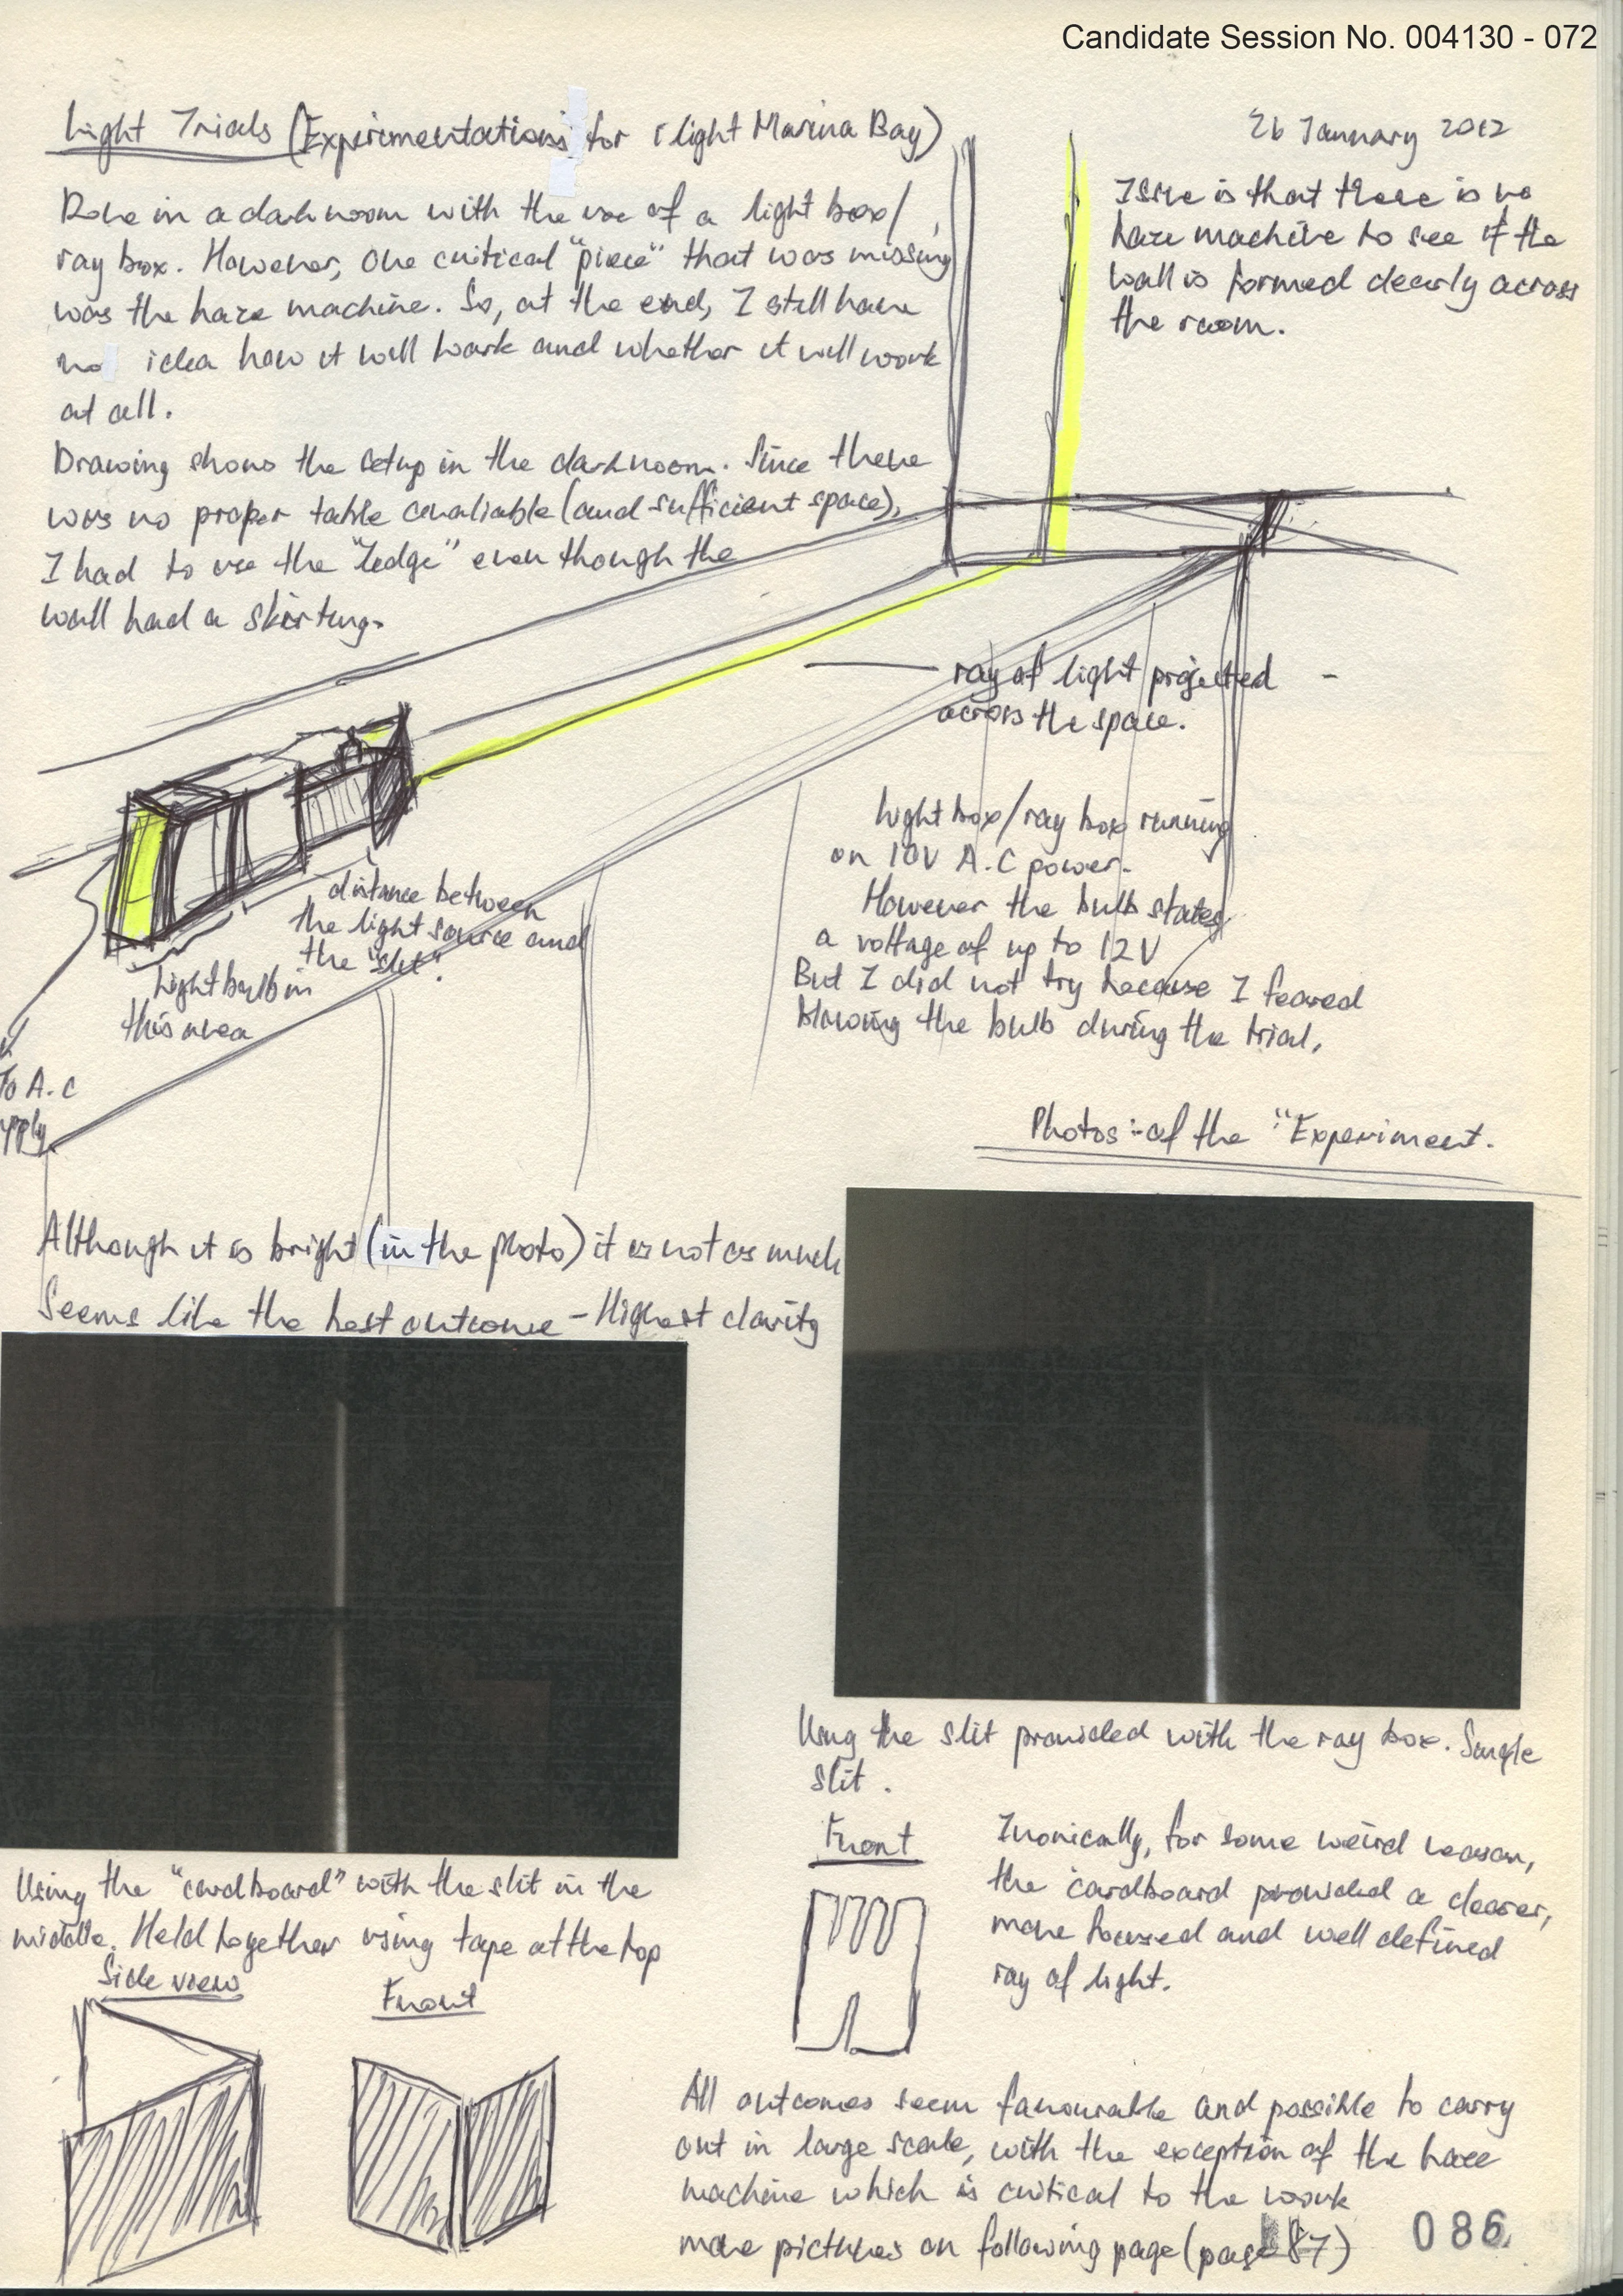 Candidate Session No. 004130 - 072
Light Trials (Experimentations for i light Marina Bay)
26 January 2012
Done in a darkroom with the use of a light box/
ray box. However, one critical "piece" that was missing
was the haze machine. So, at the end, I still have
no idea how it will work and whether it will work
at all.
Drawing shows the setup in the darkroom. Since there
was no proper table avaliable (and sufficient space),
I had to use the "ledge" even though the
wall had a skirting.
Issue is that there is no
haze machine to see if the
wall is formed clearly across
the room.
ray of light projected
across the space.
Light box/ray box running
on 10V A.C power.
However the bulb states
a voltage of up to 12V
But I did not try because I feared
blowing the bulb during the trial.
distance between
the light source and
the "slit".
Light bulb in
this area
To A.C
pply
Photos:-of the "Experiment.
Although it is bright (in the photo) it is not as much
Seems like the best outcome - Highest clarity
Using the slit provided with the ray box. Single
slit.
Using the "cardboard" with the slit in the
middle. Held together using tape at the top
Side view
Front
Front
Ironically, for some weird reason,
the cardboard provided a clearer,
more focused and well defined
ray of light.
All outcomes seem favourable and possible to carry
out in large scale, with the exception of the haze
machine which is critical to the work
more pictures on following page (page 87)
086